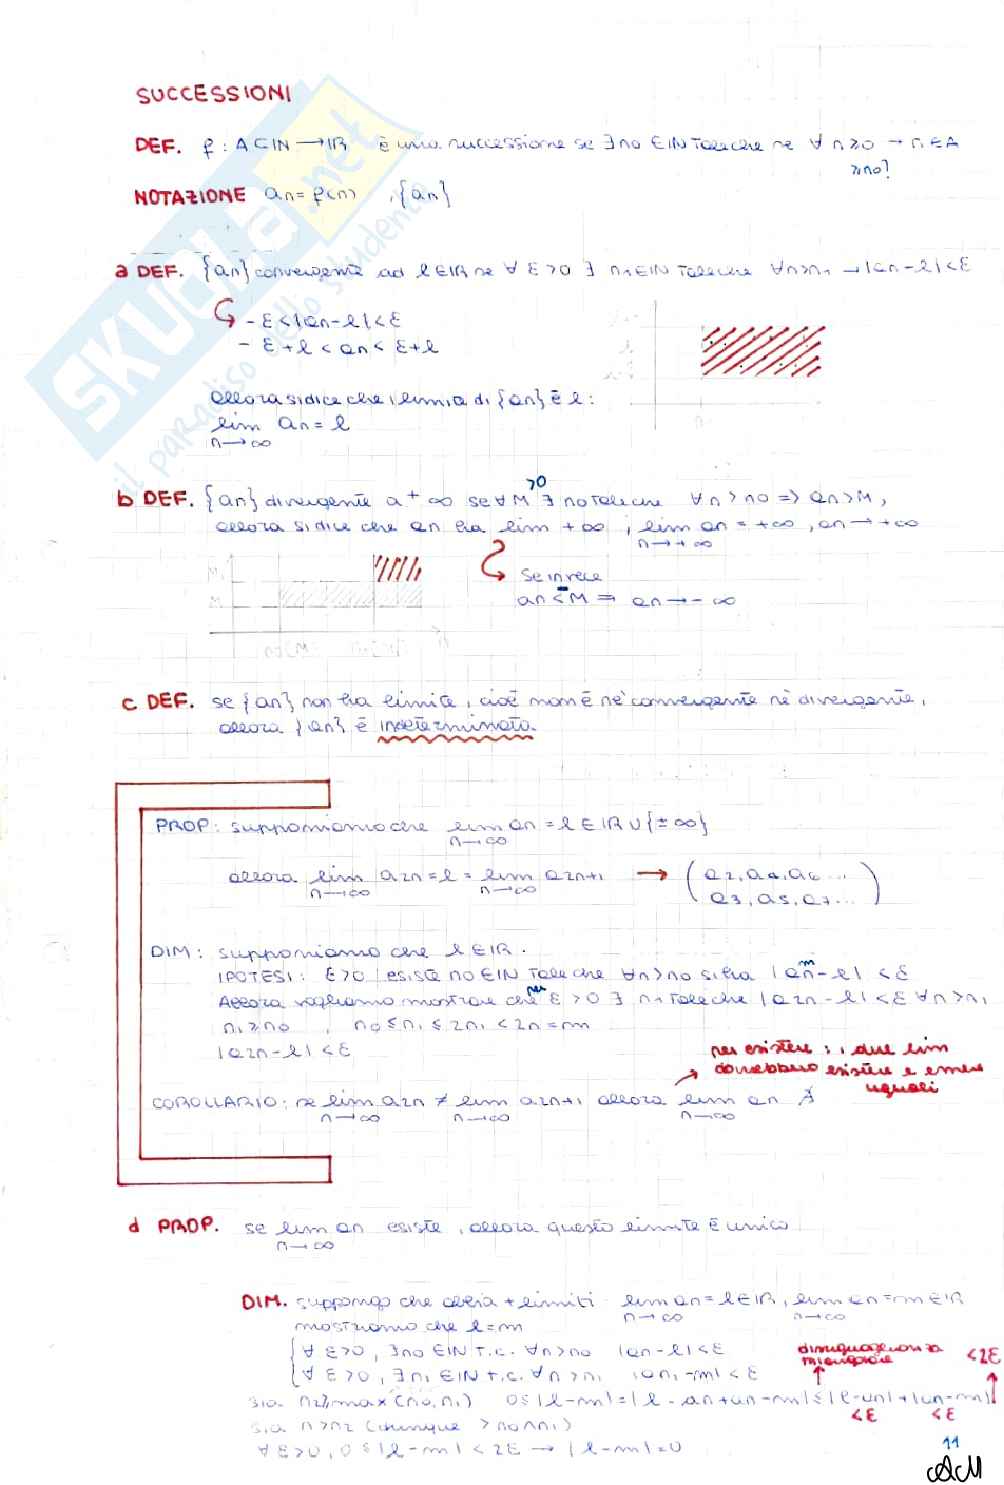 SUCCESSIONI
DEF. f: A⊂ℕ→ℝ è una successione se ∃ n0 ∈ℕ tale che se ∀ n≥0 → n∈A
≥n0?
NOTAZIONE an = f(n) , {an}
a DEF. {an} convergente ad l∈ℝ se ∀ ε>0 ∃ n1∈ℕ tale che ∀n>n1 → |an-l|<ε
-ε<|an-l|<ε
-ε+l<an<ε+l
allora si dice che il limite di {an} è l:
lim an = l
n→∞
b DEF. {an} divergente a +∞ se ∀M >0 ∃ n0 tale che ∀n>n0 => an>M,
allora si dice che an ha lim +∞ ; lim an = +∞, an→+∞
n→+∞
se invece
an<-M ⇒ an→-∞
M
M
c DEF. se {an} non ha limite, cioè non è nè convergente nè divergente,
allora {an} è indeterminata.
PROP: supponiamo che lim an = l∈ℝ∪{±∞}
n→∞
allora lim a2n = l = lim a2n+1 → (a2, a4, a6 ...
n→∞ n→∞ a3, a5, a7 ...)
DIM: supponiamo che l∈ℝ.
IPOTESI: ε>0 esiste n0∈ℕ tale che ∀n>n0 si ha |am-l|<ε
Allora vogliamo mostrare che per ε>0 ∃ n1 tale che |a2n-l|<ε ∀n>n1
n1≥n0 , n0≤n1≤2n1<2n=m
|a2n-l|<ε
per esistere: i due lim
dovrebbero esistere e essere
uguali
COROLLARIO: se lim a2n ≠ lim a2n+1 allora lim an ∄
n→∞ n→∞ n→∞
d PROP. se lim an esiste, allora questo limite è unico
n→∞
DIM. suppongo che abbia + limiti lim an = l∈ℝ, lim an = m∈ℝ
n→∞ n→∞
mostriamo che l=m
{∀ ε>0, ∃n0∈ℕ t.c. ∀n>n0 |an-l|<ε
{∀ ε>0, ∃n1∈ℕ t.c. ∀n>n1 |an-m|<ε
disuguaglianza
triangolare
<2ε
sia n2≥max(n0,n1) 0≤|l-m|=|l-an+an-m|≤|l-an|+|an-m|
<ε <ε
sia n>n2 (dunque >n0∧n1)
∀ε>0, 0≤|l-m|<2ε → |l-m|=0
11
SKUOLA.net
il paradiso dello studente